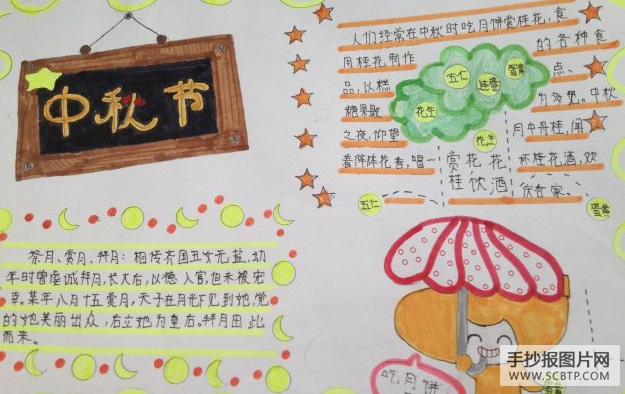 中秋节
人们经常在中秋时吃月饼赏桂花,食
用桂花制作
的各种食
品,以糕
点、
糖果最
为多见。中秋
之夜,仰望
月中丹桂,闻
着阵阵花香,喝一
杯桂花酒,欢
饮合家
五仁
莲蓉
蛋黄
花生
花生
赏花花
桂饮酒
五仁
蛋黄
祭月、赏月、拜月:相传齐国丑女无盐,幼
年时曾虔诚拜月,长大后,以德入宫,但未被宠
幸。某年八月十五赏月,天子在月光下见到她,觉
的她美丽出众,后立她为皇后。拜月由此
而来。
吃月饼
蛋黄
手抄报图片网
WWW.SCBTP.COM